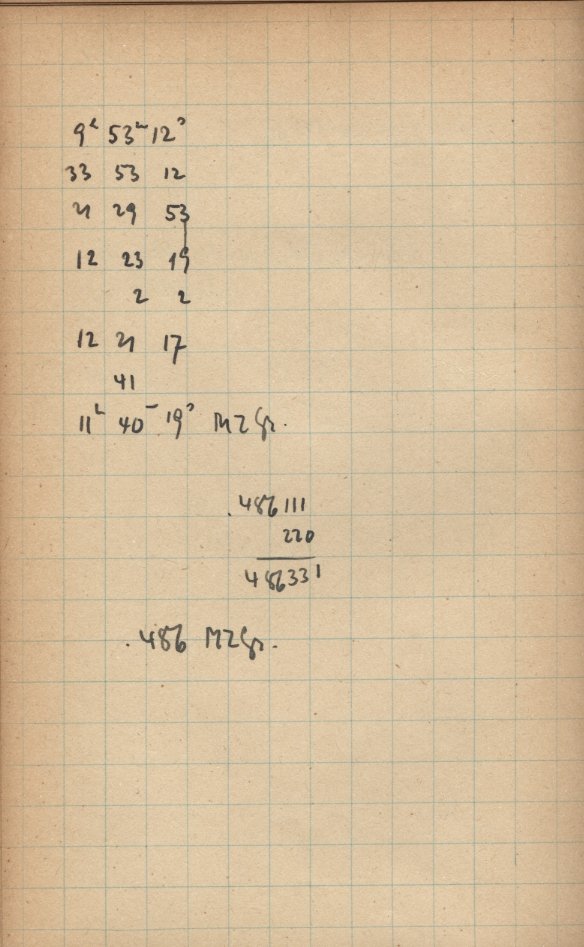 9ʰ 53ᵐ 12ˢ
33 53 12
21 29 53
12 23 19
2 2
12 21 17
41
11ʰ 40ᵐ 19ˢ MZGr.
.486111
220
486331
.486 MZGr.